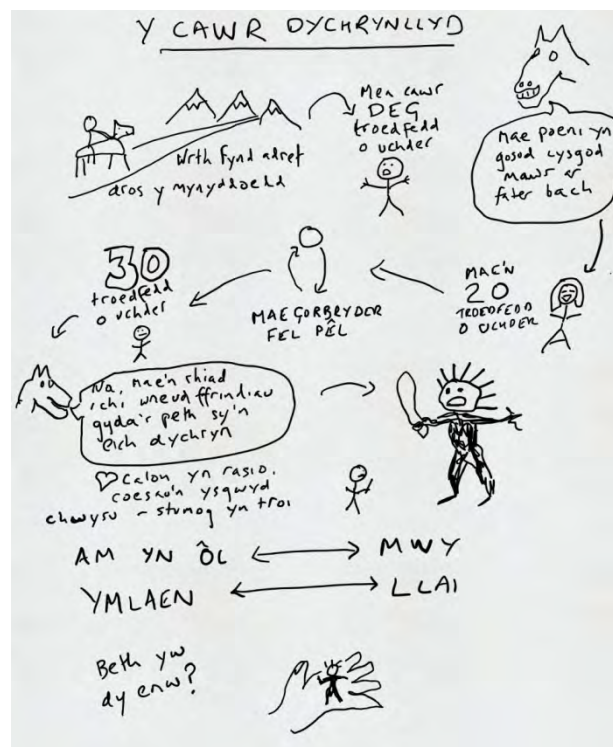 Y CAWR DYCHRYNLLYD
Mea cawr
DEG
troedfedd
o uchder
Wrth fynd adref
dros y mynyddoedd
Mae poeni yn
gosod cysgod
mawr ar
fater bach
30
troedfedd
o uchder
MAE GORBRYDER
FEL PÊL
MAE'N
20
TROEDFEDD
O UCHDER
Na, mae'n rhiad
ichi wneud ffrindiau
gyda'r peth sy'n
eich dychryn
Calon yn rasio,
coesau'n ysgwyd
chwysu - stumog yn troi
AM YN ÔL
MWY
YMLAEN
LLAI
Beth yw
dy enw?